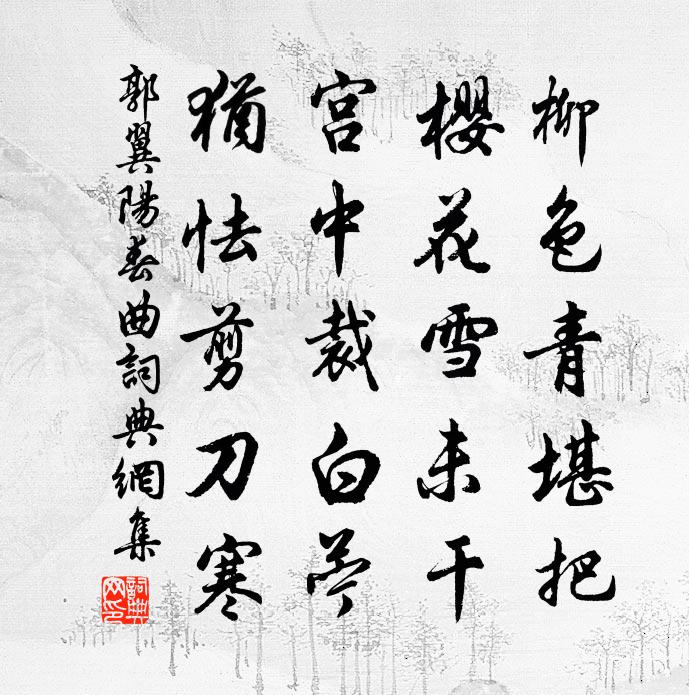 柳色青堪把
櫻花雪未干
宮中裁白苧
猶怯剪刀寒
郭翼陽春曲詞典網集
詞典網印